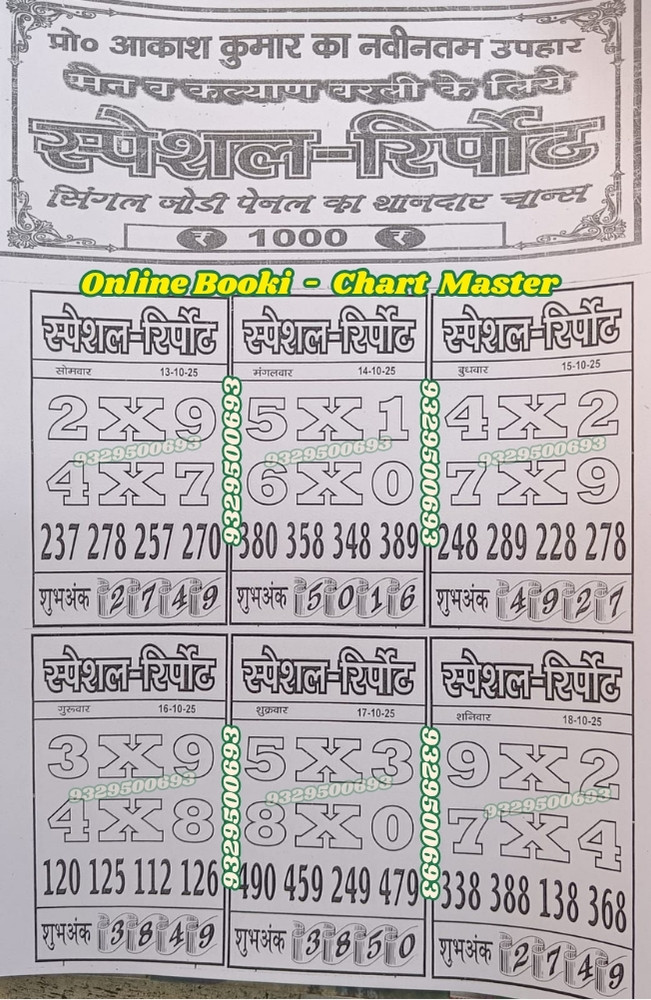 प्रो० आकाश कुमार का नवीनतम उपहार
मेन व कल्याण वरली के लिये
स्पेशल-रिर्पोट
सिंगल जोडी पेनल का शानदार चान्स
₹ 1000 ₹
Online Booki - Chart Master
स्पेशल-रिर्पोट
सोमवार 13-10-25
2 X 9
9329500693
4 X 7
237 278 257 270
शुभअंक 2 7 4 9
9329500693
स्पेशल-रिर्पोट
मंगलवार 14-10-25
5 X 1
9329500693
6 X 0
380 358 348 389
शुभअंक 5 0 1 6
9329500693
स्पेशल-रिर्पोट
बुधवार 15-10-25
4 X 2
9329500693
7 X 9
248 289 228 278
शुभअंक 4 9 2 7
स्पेशल-रिर्पोट
गुरूवार 16-10-25
3 X 9
9329500693
4 X 8
120 125 112 126
शुभअंक 3 8 4 9
9329500693
स्पेशल-रिर्पोट
शुक्रवार 17-10-25
5 X 3
9329500693
8 X 0
490 459 249 479
शुभअंक 3 8 5 0
9329500693
स्पेशल-रिर्पोट
शनिवार 18-10-25
9 X 2
9329500693
7 X 4
338 388 138 368
शुभअंक 2 7 4 9